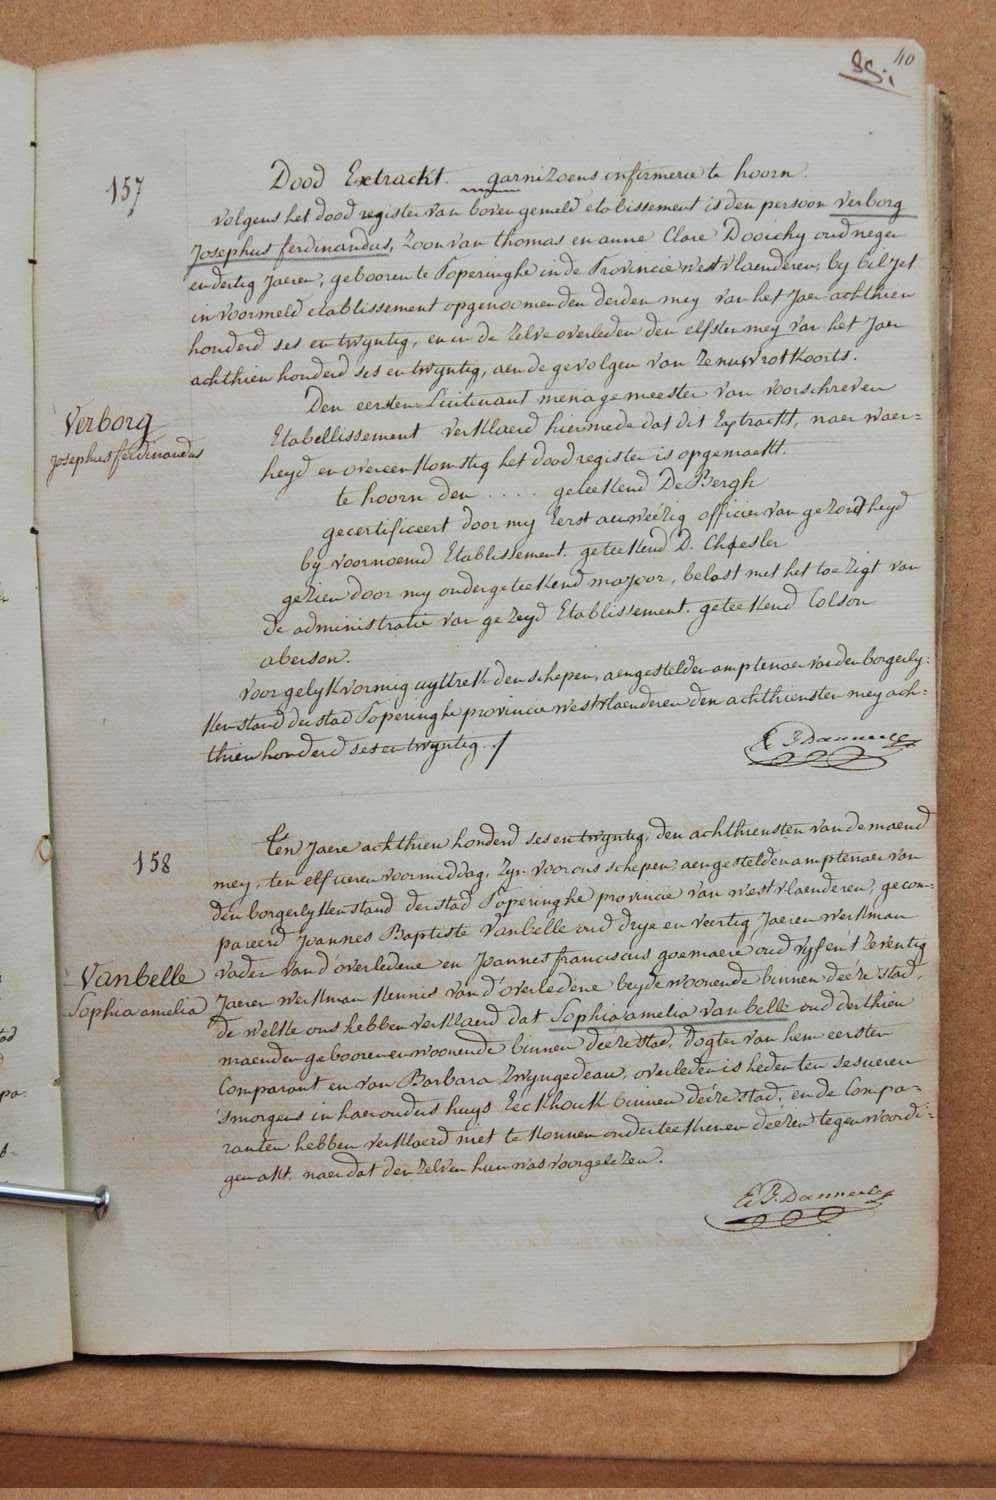 40
157
Dood Extrackt. garnizoens infirmerie te hoorn.
volgens het dood register van bovengemeld etablissement is den persoon verborg
Josephus ferdinandus, zoon van thomas en anne Clare Dooichy oud negen
en dertig Jaeren, gebooren te Poperinghe in de Provincie westvlaenderen, by biljet
in voormeld etablissement opgenoomen den derden mey van het Jaer achthien
honderd ses en twyntig, en in de zelve overleden den elfsten mey van het Jaer
achthien honderd ses en twyntig, aen de gevolgen van zenuwrotkoorts.
Den eersten Luitenant menagemeester van voorschreven
Verborg
Josephus ferdinandus
Etabellissement verklaerd hiermede dat dit Extrackt, naer waer=
heyd en overeenkomstig het dood register is opgemaekt.
te hoorn den ..... geteekend De Bergh
gecertificeert door my Eerst aenweézig officier van gezondheyd
by voornoemd Etablissement. geteekend D.
gezien door my ondergeteekend majoor, belast met het toezigt van
de administratie van gezeyd Etablissement. geteekend Colson
aberson.
voor gelykvormig uyttrek den schepen, aengestelden amptenaer van den borgerly=
ken stand der stad Poperinghe provincie westvlaenderen den achthiensten mey ach=
thien honderd ses en twyntig ./
158
Ten Jaere achthien honderd ses en twyntig, den achthiensten van de maend
mey, ten elf ueren voormiddag, zyn voor ons schepen, aengestelden amptenaer van
den borgerlyken stand der stad Poperinghe provincie van westvlaenderen, gecom=
pareerd Joannes Baptiste Vanbelle oud drye en veertig Jaeren werkman
Vanbelle
Sophia amelia
vader van d'overledene en Joannes franciscus goemaere oud vyf en 't zeventig
Jaeren werkman kennis van d'overledene beyde woonende binnen deéze stad,
de welke ons hebben verklaerd dat Sophia amelia van belle oud derthien
maenden gebooren en woonende binnen deéze stad, dogter van hem eersten
Comparant en van Barbara Zwyngedeau, overleden is heden ten ses ueren
'smorgens in haer ouders huys Eeckhouk binnen deéze stad, en de Compa=
ranten hebben verklaerd niet te konnen onderteekenen deézen tegenwoordi=
gen akt, naer dat den zelven hun was voorgelezen.